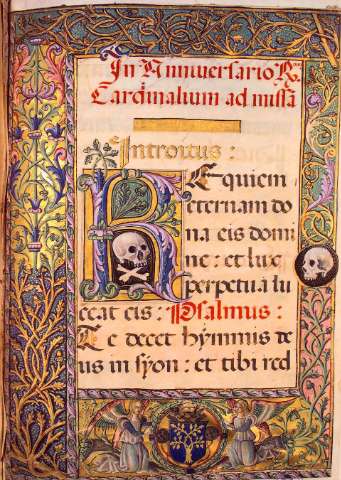 In Anniuersario
Cardinalium ad missã
Introitus:
Requiem
eternam do
na eis domi
ne: et lux
perpetua lu
ceat eis: Psalmus:
Te decet hymnus de
us in syon: et tibi red